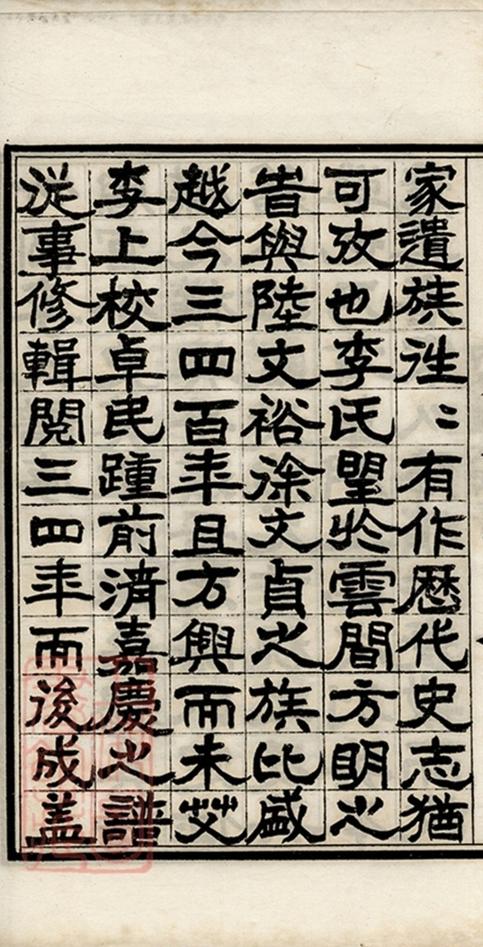 家遺族往〻有作歷代史志猶
可攷也李氏朢於雲閒方明之
旹與陸文裕徐文貞之族比盛
越今三四百年且方興而未艾
李上校卓民踵前淸嘉慶之譜
從事修輯閱三四年而後成蓋